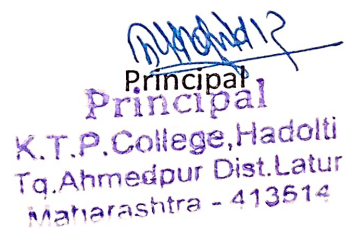 Principal
Principal
K.T.P.College,Hadolti
Tq.Ahmedpur Dist.Latur
Maharashtra - 413514